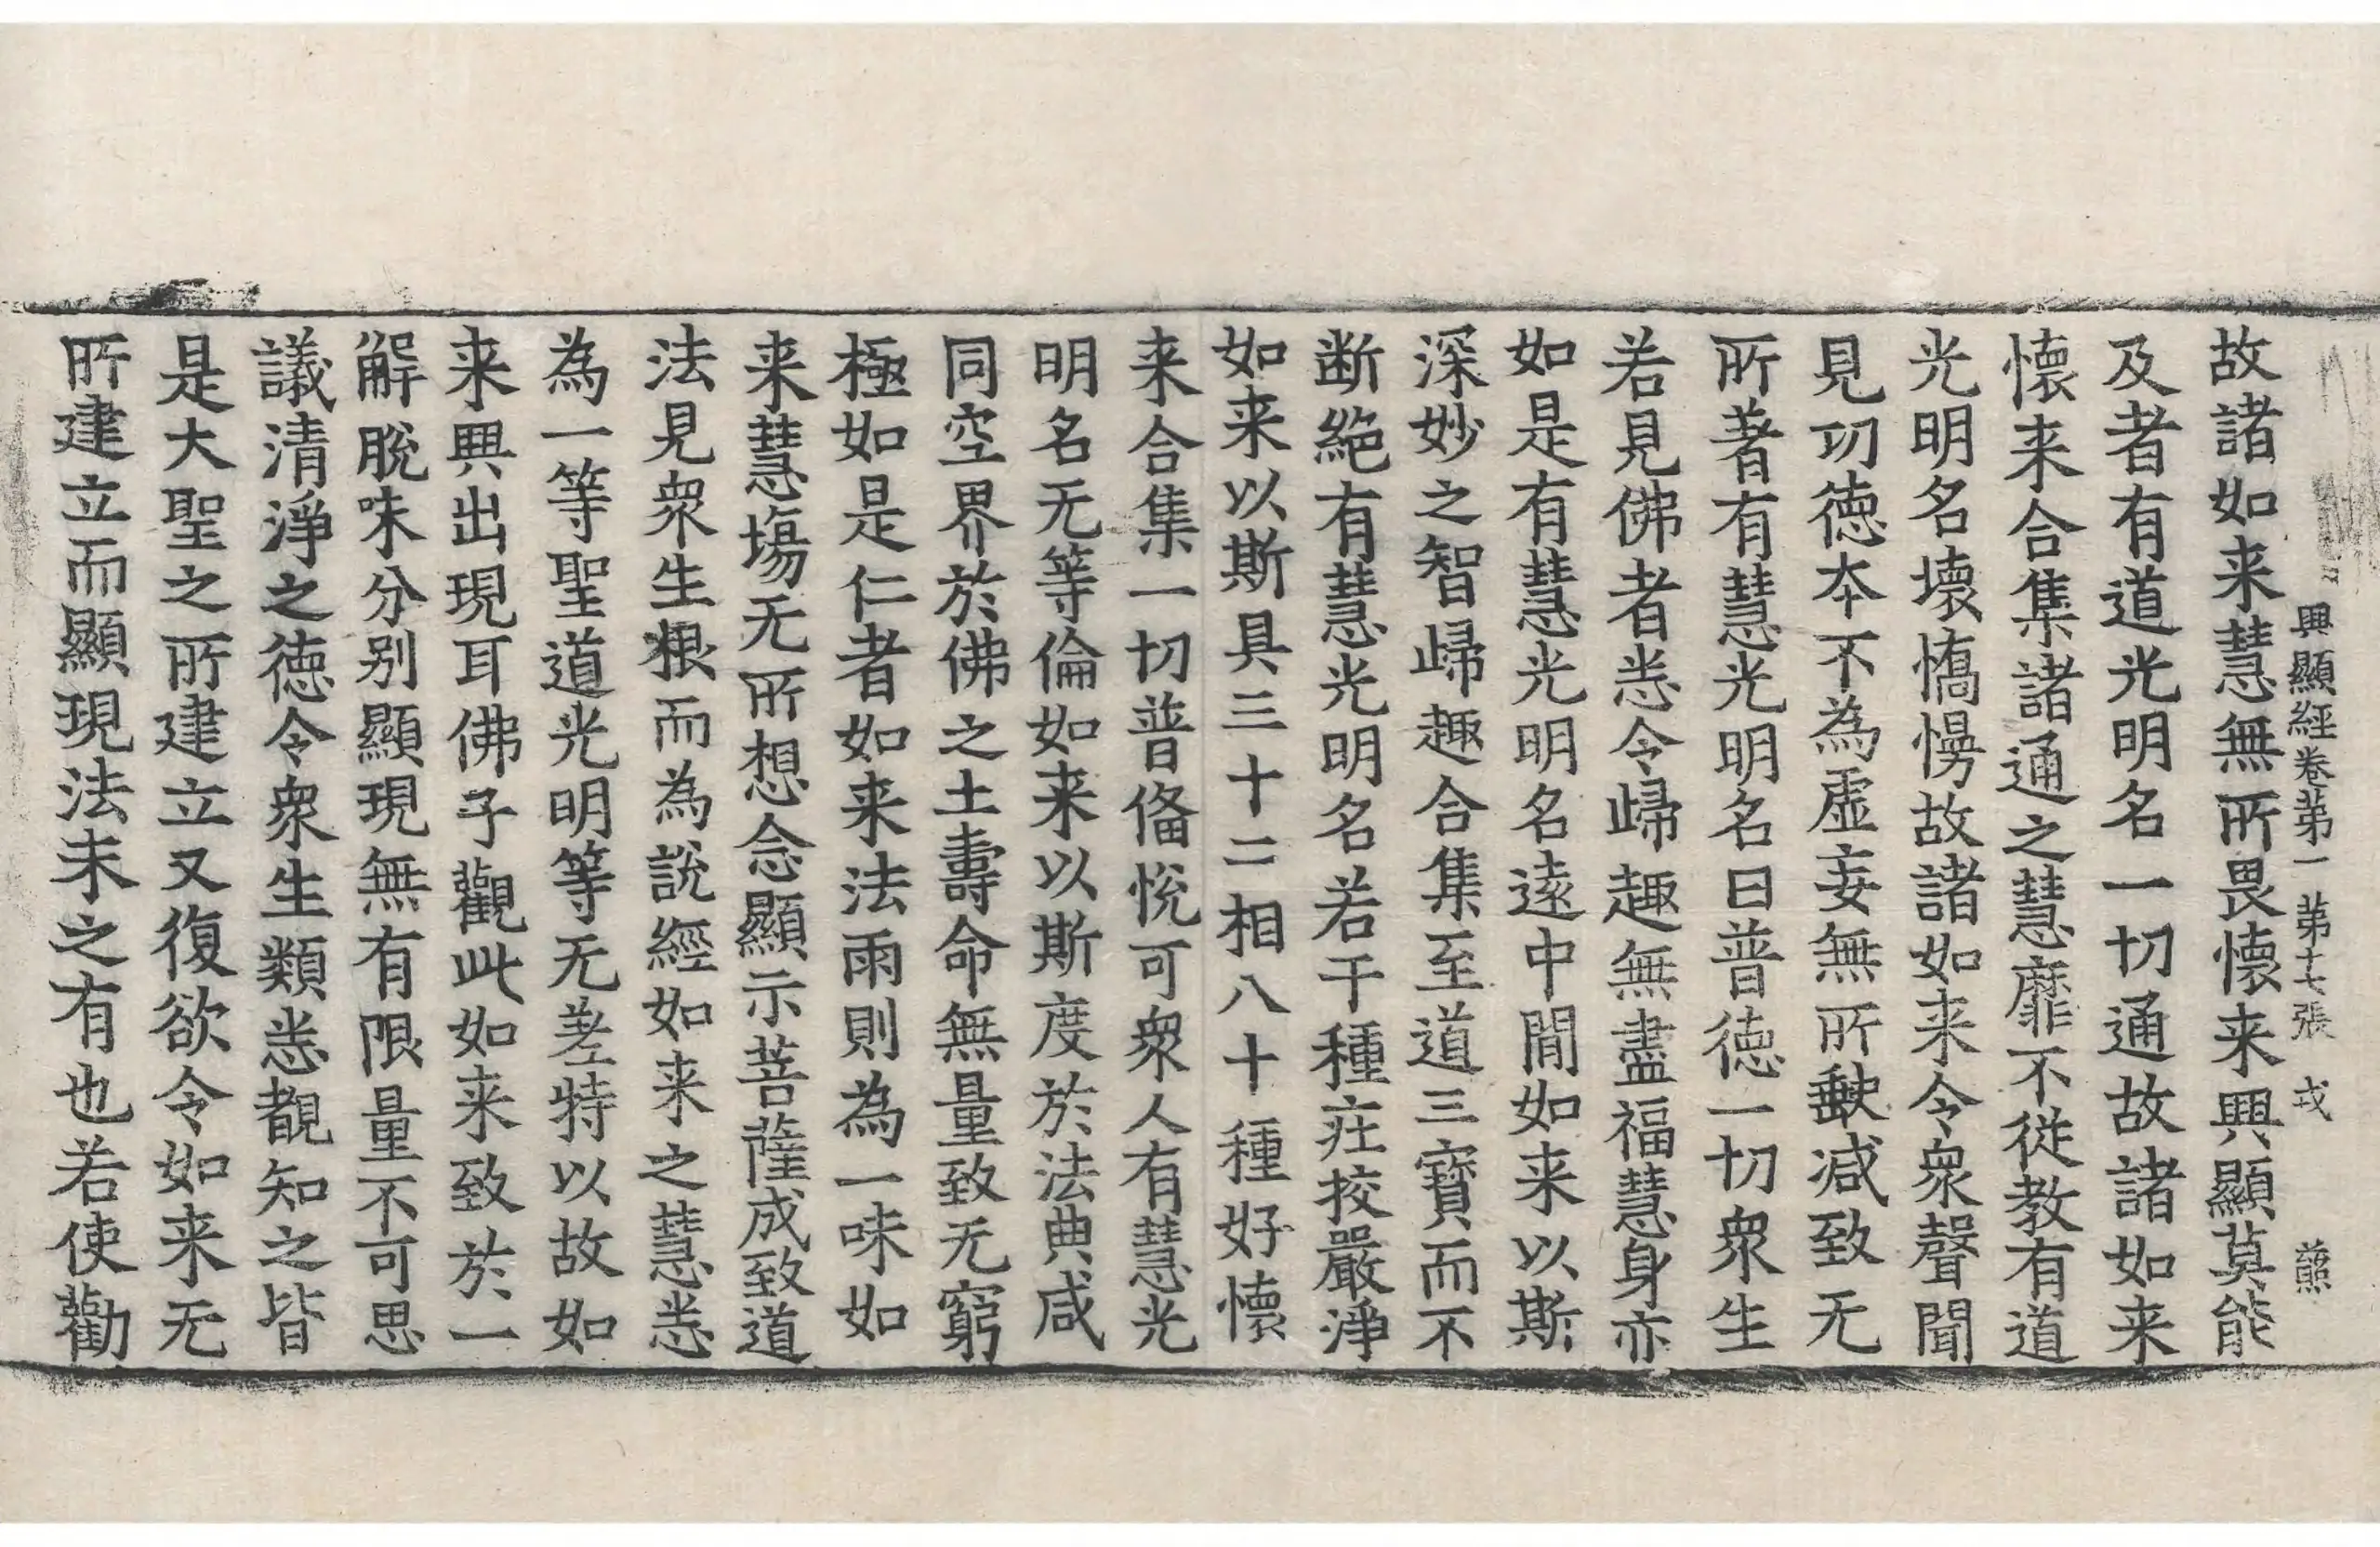 興顯經卷第一 第十七張 戎 䕃
故諸如来慧無所畏懷来興顯莫能
及者有道光明名一切通故諸如来
懷来合集諸通之慧靡不従教有道
光明名壞憍慢故諸如来令衆聲聞
見功徳本不為虚妄無所𧇊减致无
所著有慧光明名曰普徳一切衆生
若見佛者悉令歸趣無盡福慧身亦
如是有慧光明名遠中間如来以斯
深妙之智歸趣合集至道三寳而不
断絕有慧光明名若干種莊挍嚴淨
如来以斯具三十二相八十種好懷
来合集一切普俻悅可衆人有慧光
明名无等倫如来以斯度於法典咸
同空界於佛之土壽命無量致无窮
極如是仁者如来法雨則為一味如
来慧塲无所想念顯示菩薩成致道
法見衆生根而為說經如来之慧悉
為一等聖道光明等无差特以故如
来興出現耳佛子觀此如来致於一
解脫味分别顯現無有限量不可思
議清淨之徳令衆生類悉覩知之皆
是大聖之所建立又復欲令如来无
所建立而顯現法未之有也若使勸